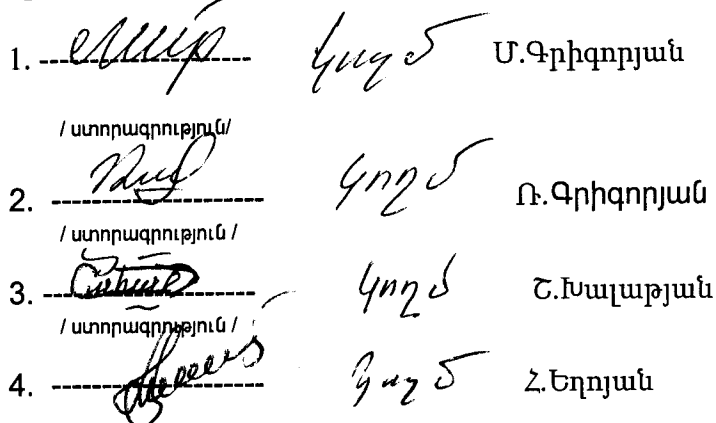 1. ---------------- կողմ Մ.Գրիգորյան
/ ստորագրություն/
2. ---------------- կողմ Ռ.Գրիգորյան
/ ստորագրություն /
3. ---------------- կողմ Շ.Խալաթյան
/ ստորագրություն /
4. ---------------- կողմ Հ.Եղոյան